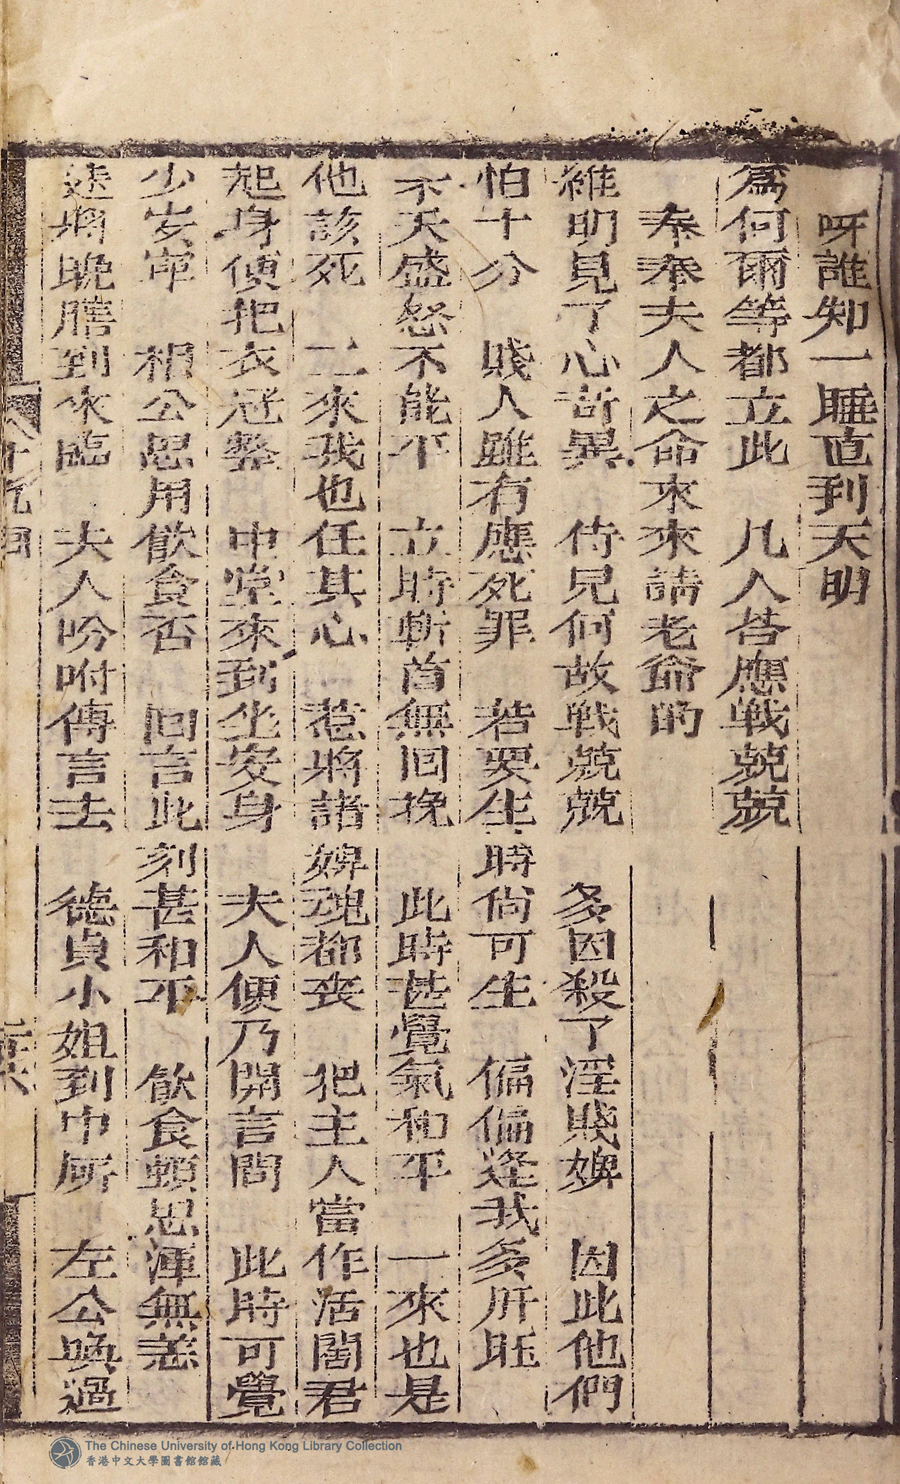 呀誰知一睡直到天明
爲何爾等都立此　凡人荅應戦兢兢
奉奉夫人之命來來請老爺的
維明見了心奇異　侍兒何故戦兢兢　多因殺了淫賤婢　因此他們
怕十分　賤人雖有應死罪　若要生時尙可生　偏偏逢我多肝
不天盛怒不能平　立時斬首無回挽　此時甚覺氣和平　一來也是
他該死　二來我也任其心　惹將諸婢魂都丧　把主人當作活閻君
起身便把衣冠整　中堂來到坐安身　夫人便乃開言問　此時可覺
少安寕　相公思用飲食否　回言此刻甚和平　飲食頓思渾無恙
速將晚膳到來臨　夫人吩咐傳言去　德貞小姐到中所　左公喚過
十九囘
The Chinese University of Hong Kong Library Collection
香港中文大學圖書館館藏